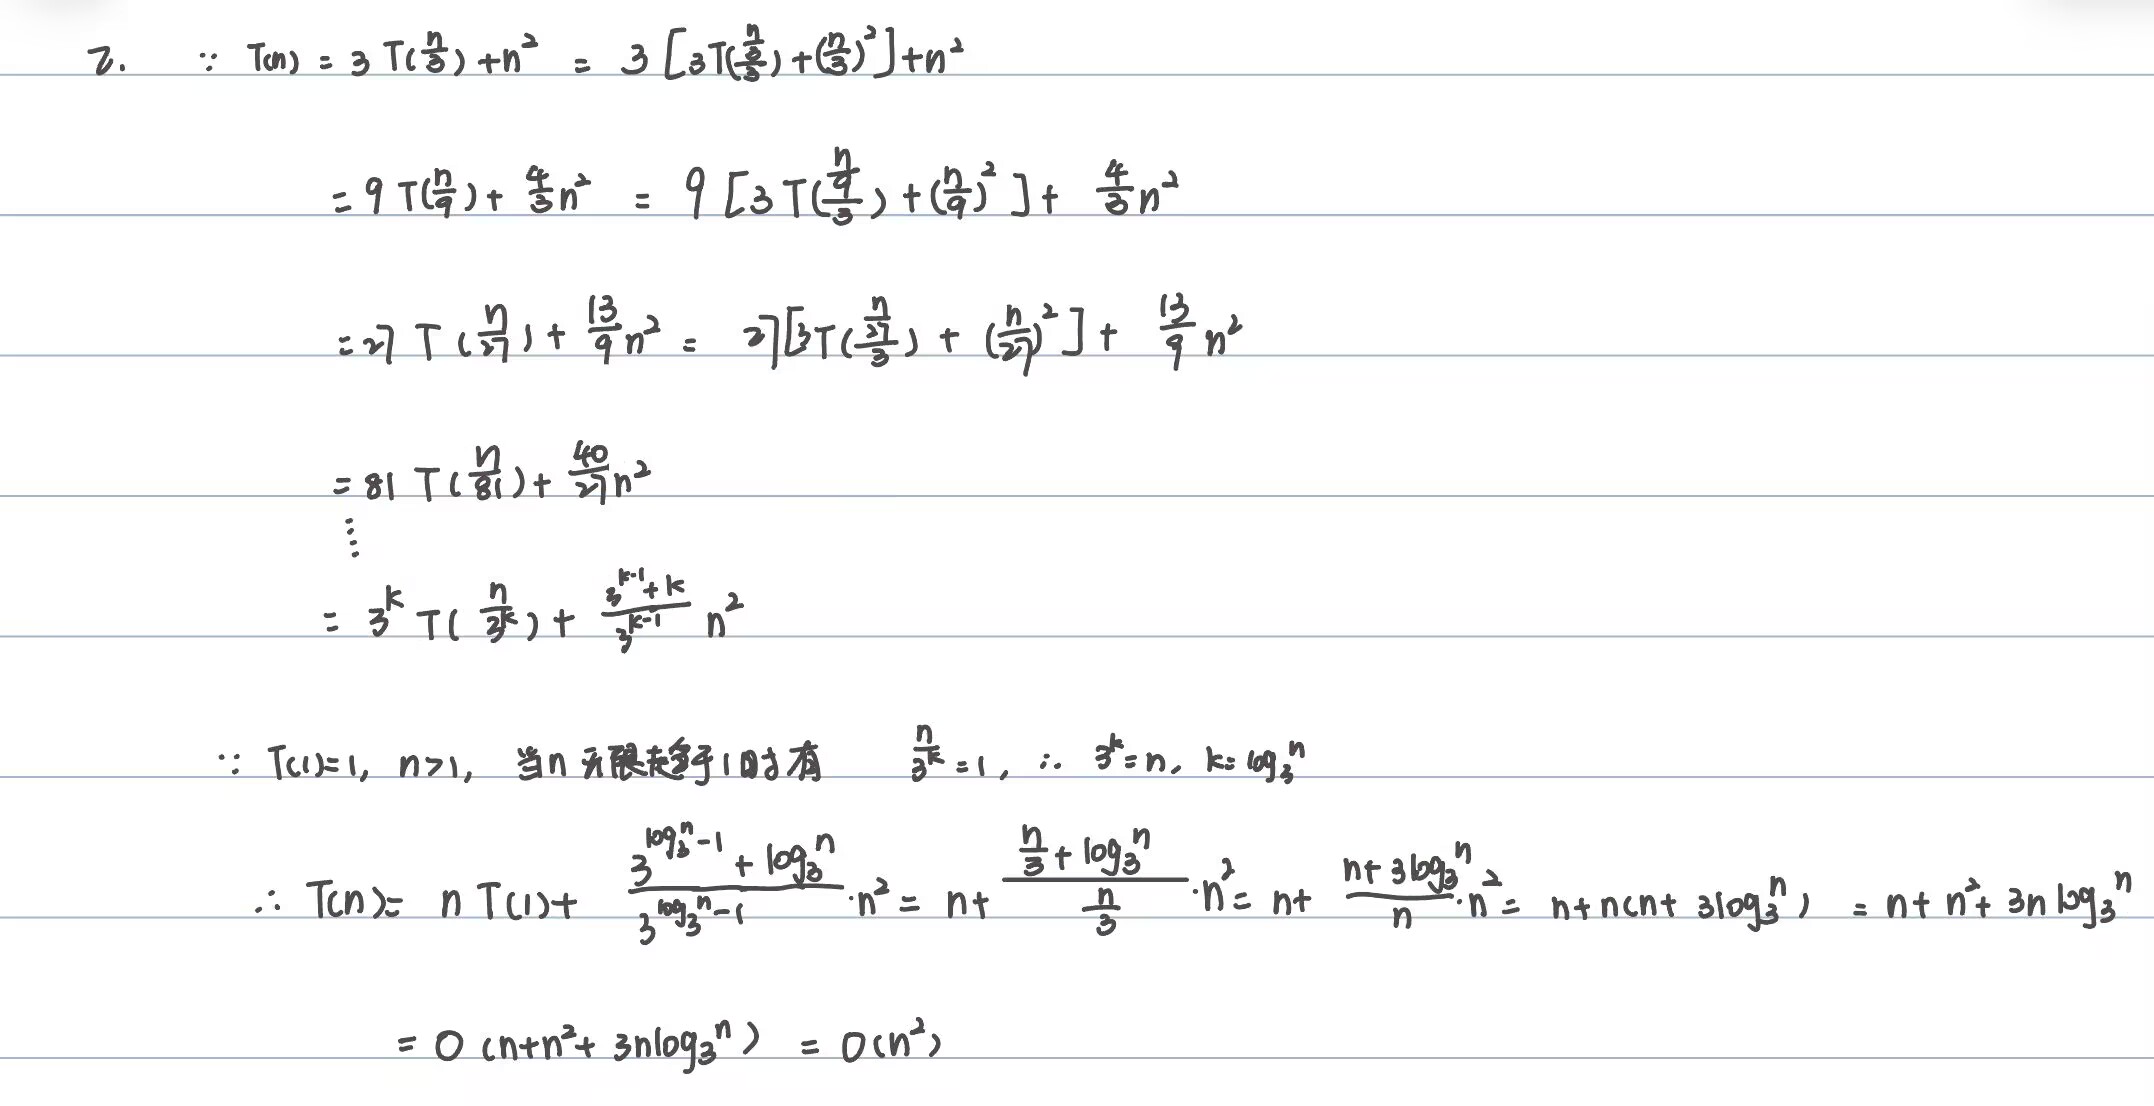 2. ∵ T(n) = 3T(n/3)+n² = 3[3T((n/3)/3)+(n/3)²]+n²
= 9T(n/9)+ 4/3 n² = 9[3T((n/9)/3)+(n/9)²]+ 4/3 n²
= 27T(n/27)+ 13/9 n² = 27[3T((n/27)/3)+(n/27)²]+ 13/9 n²
= 81T(n/81)+ 40/27 n²
⋮
= 3^k T(n/3^k)+ (3^(k-1)+k)/3^(k-1) n²
∵ T(1)=1, n>1, 当n无限趋于1时有 n/3^k =1, ∴ 3^k=n, k=log₃ⁿ
∴ T(n)= nT(1)+ (3^(log₃ⁿ-1)+log₃ⁿ)/3^(log₃ⁿ-1) ·n² = n+ (n/3+log₃ⁿ)/(n/3) ·n² = n+ (n+3log₃ⁿ)/n ·n² = n+n(n+3log₃ⁿ) = n+n²+3nlog₃ⁿ
= O(n+n²+3nlog₃ⁿ) = O(n²)